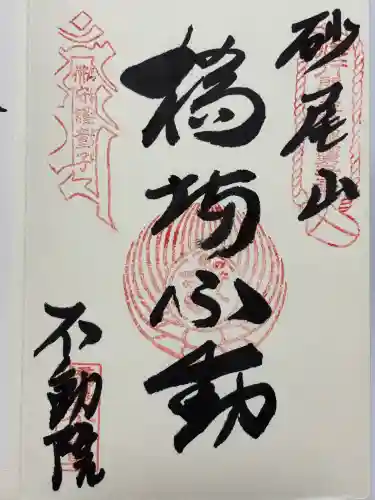 砂尾山
橋場不動
不動院